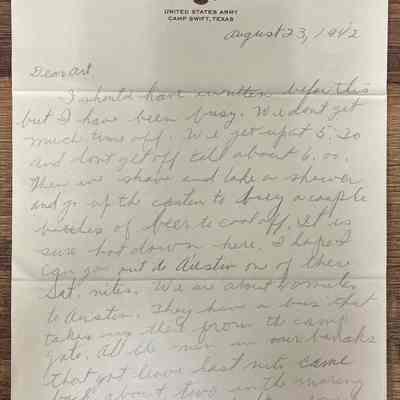 UNITED STATES ARMY
CAMP SWIFT, TEXAS
August 23, 1942
Dear Art,
I should have written before this
but I have been busy. We dont get
much time off. We get up at 5:30
and dont get off till about 6:00.
Then we shave and take a shower
and go up the canteen to buy a couple
bottles of beer to cool off. It is
sure hot down here. I hope I
can go out to Austin one of these
Sat. nites. We are about 40 miles
to Austin. They have a bus that
takes you there from the camp
gate. All the men in our barraks
that got leave last nite came
back about two in the morning